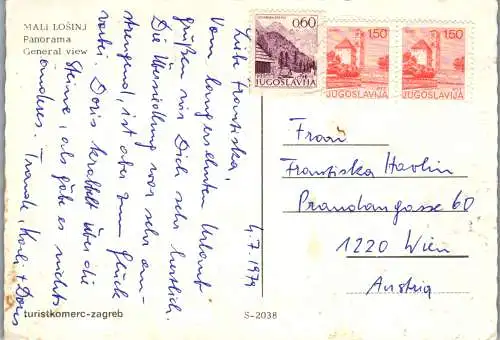 MALI LOŠINJ
Panorama
General view
4.7.1979
Liebe Franziska,
Vom langersehnten Urlaub
grüßen wir Dich sehr herzlich.
Die Übersiedlung war sehr an-
strengend, ist aber zum Glück
vorbei. Doris krabbelt über die
Steine, als gäbe es nichts
anderes. Traude, Karli + Doris
turistkomerc-zagreb
S-2038
0.60
JUGOSLAVIJA
1.50
JUGOSLAVIJA
1.50
JUGOSLAVIJA
Frau
Franziska Havlin
Prandaugasse 60
1220 Wien
Austria